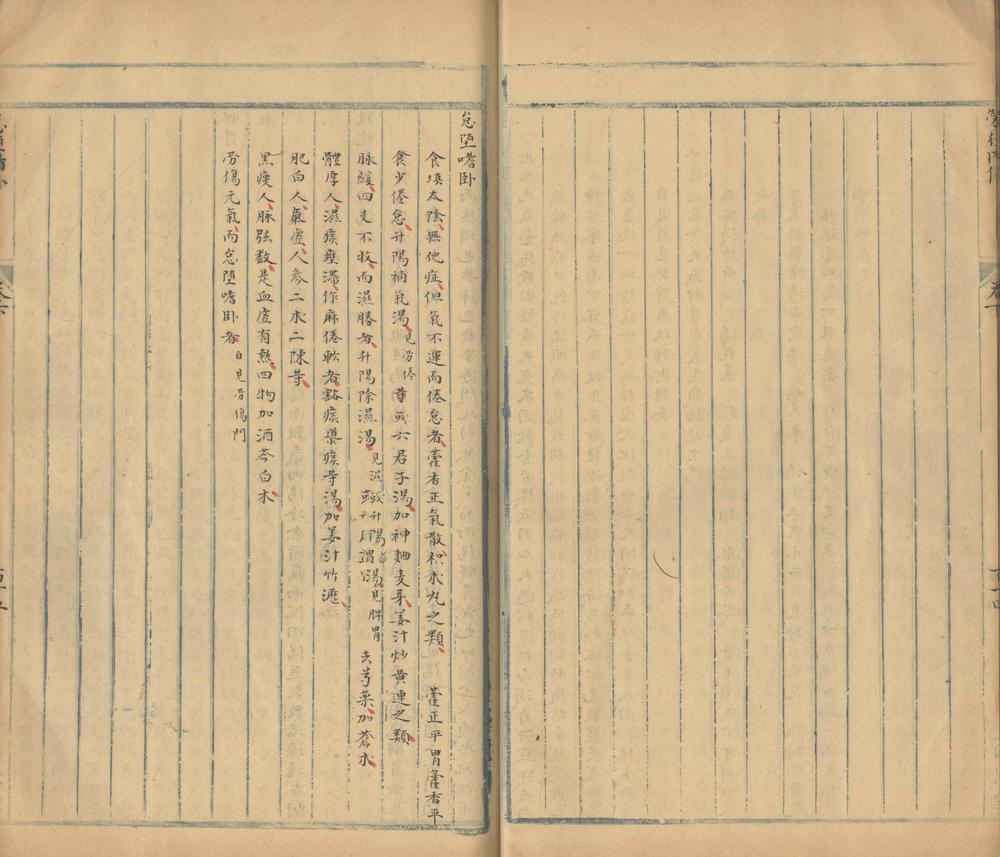 怠堕嗜卧
食填太陰無他症但氣不運而倦怠者藿香正氣散枳朮丸之類 藿正平胃藿香平
食少倦怠升陽補氣湯見勞倦等或六君子湯加神麯麦芽姜汁炒黄連之類
脉緩四支不收而濕勝者升陽除濕湯見濕或升陽湯見脾胃 去芍藥加蒼朮
體厚人濕痰壅滞作麻倦軟者豁痰導痰等湯加姜汁竹瀝
肥白人氣虚人參二朮二陳等
黒瘦人脉弦数是血虚有熱四物加酒芩白朮
勞傷元氣而怠堕嗜卧者白見勞傷門